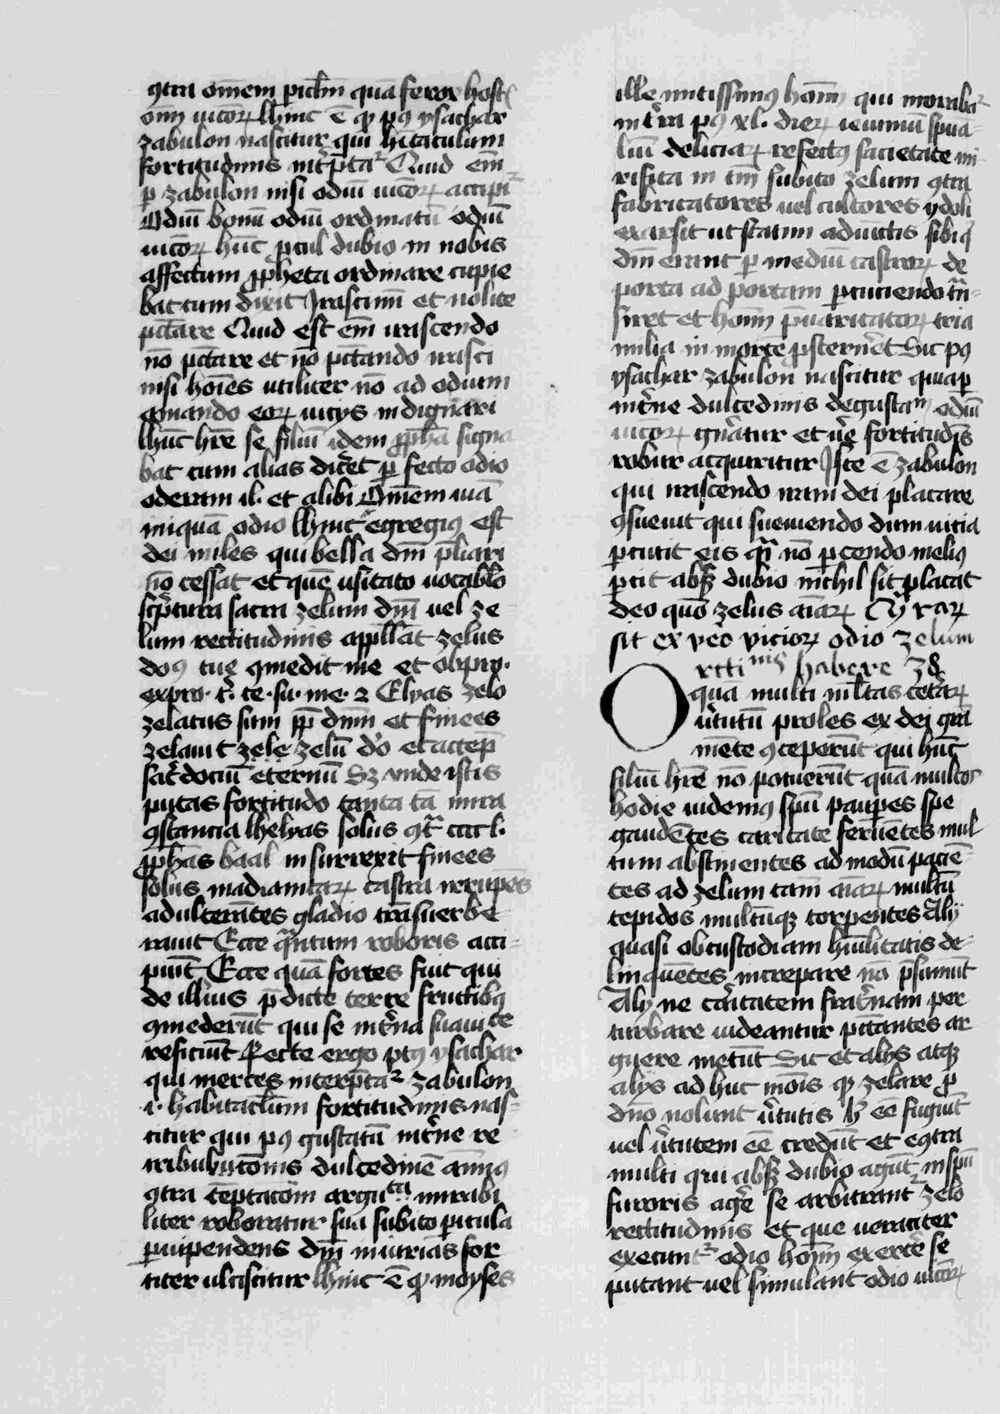 qtra om̄em pic̄lm̄ quā feror hostē
om̄i uicioꝝ Hinc ē qꝫ pꝰ ysachar
zabulon nascitur qui hītaculum
fortitudinis int̄pt̄aʳ Quid em̄
ꝑ zabulon nisi odiū uicioꝝ accipiʳ
Odiū bonū odiū ordinatū odiū
uicioꝝ hūc ꝓcul dubio in nobis
affectum ꝓpheta ordinare cupie
bat cum dixit Irascimī et nolite
pc̄care Quid est em̄ irascendo
nō pc̄care et nō pc̄cando irasci
nisi hōies utiliter nō ad odium
qmando eoꝝ uicijs indignari
Hūc hr̄e se filiū idem ꝓphā signa
bat cum alias dic̄et ꝑfecto odio
oderam il· et alibi Om̄em uiā
iniquā odio Hinc egregiꝰ est
dei miles qui bella dn̄i p̄liari
nō cessat et quē usitato uocablo
scp̄tura sacra zelum dn̄i uel ze
lum rectitudinis appllāt zelus
domꝰ tue qmedit me et obpro·
expro· t̄· te· su· me· ⁊ Elyas zelo
zelatus sum pp̄ dn̄m et finees
zelauit zele zelū dō et accep̄
sac̄dociū eternū Sꝫ unde istis
putas fortitudo tanta tā mira
qstancia Helyas solus qtʳ cccc l·
ꝓphās baal insurrexit finees
solus madianitaꝝ castra irrūpēs
adulterātes gladio trāsuerbe
rauit Ecce qⁿtum roboris acci-
piūt Ecce quā fortes fiūt qui
de illius p̄dicte terre fructibꝫ
qmederūt qui se int̄na suauitᵗᵉ
reficiūt Recte ergo pꝰ ysachar
qui merces interp̄taʳ zabulon
i· habitaclm̄ fortitudinis nas-
citur qui pꝰ gustatū int̄ne re
tribuucōnis dulcedinē animꝰ
qtra tēptacōm arguᵗᵃ mirabi
liter roboratur sua subito picula
ꝑuipendens dn̄i iniurias for
titer ulciscitur Hinc ē qꝫ moyses
ille mitissimꝰ hoīm qui morabaʳ
in t̄ra pꝰ xl· dieꝝ ieiuniū spūa-
liū deliciaꝝ refectꝰ sacietate mi-
rifica in tm̄ subito zelum qtra
fabricatores uel cultores ydoli
exarsit ut statim adiūctis sibi qͥ
dn̄i erant ꝑ mediū castroꝝ de
porta ad portam ꝑcuciendo trā
siret et hoīm p̄uaricatoꝝ tria
milia in morte ꝓsterneret Sic pꝰ
ysachar zabulon nascitur quia ꝑ
int̄ne dulcedinis degustaᵐ odiū
uicioꝝ gn̄atur et u̇e fortitudīs
robur acquiritur Iste ē zabulon
qui irascendo iram dei placare
qsueuit qui seuiendo dum uicia
ꝑcutit eis qʳ nō ꝑcendo meliꝰ
ꝑcit absqꝫ dubio nichil sic placat
deo quō zelus aīaꝝ Qͫ raꝝ
sit ex vero vicioꝝ odio zelum
recti ᵐⁱˢ habere 38
O quā multi ml̄tas cet̄aꝝ
ūtutū proles ex dei grā
mēte qceperūt qui hūc
filiū hr̄e nō potuerūt quā multos
hodie uidemꝰ spū pauꝑes spe
gaudētes caritate feruētes mul
tum abstinentes ad modū paciē-
tes ad zelum tam aīaꝝ multū
tepidos multūqꝫ torpentes Alij
quasi ob custodiam hūilitatis de-
linquētes increpare nō p̄sumūt
Alij ne caritatem frat̄nam per
turbare uideantur pc̄cantes ar
guere metūt Sic et alijs atqꝫ
alijs ad huc mōis qꝫ zelare ꝓ
dn̄o nolunt ūtutis hͦ eē fugiūt
uel ūtutem eē credūt et eqtra
multi qui absqꝫ dubio agūt in spū
furoris agē se arbitrantʳ zelo
rectitudinis et que ueraciter
execuntʳ odio hoīm exercē se
putant uel simulant odio uicioꝝ